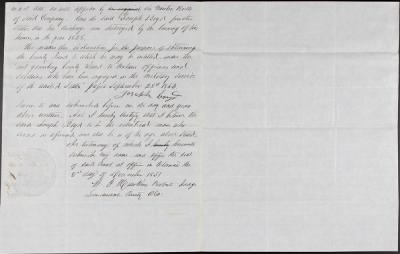 will appear by the Muster Rolls
of said Company. And the said Joseph Lloyd further
states that his discharge was destroyed by the burning of his
house, in the year 1825.
He makes this declaration for the purpose of obtaining
the bounty land to which he may be entitled under the
act granting bounty land to certain officers and
soldiers who have been engaged in the military service
of the United States passed September 28th 1850
Joseph Lloyd
Sworn to and subscribed before me the day and year
above written. And I hereby certify that I believe the
said Joseph Lloyd to be the identical man who
served as aforesaid and that he is of the age above stated
In testimony of which I hereunto
subscribe my name and affix the seal
of said Court at office in
day of December 1851
Probate Judge
County